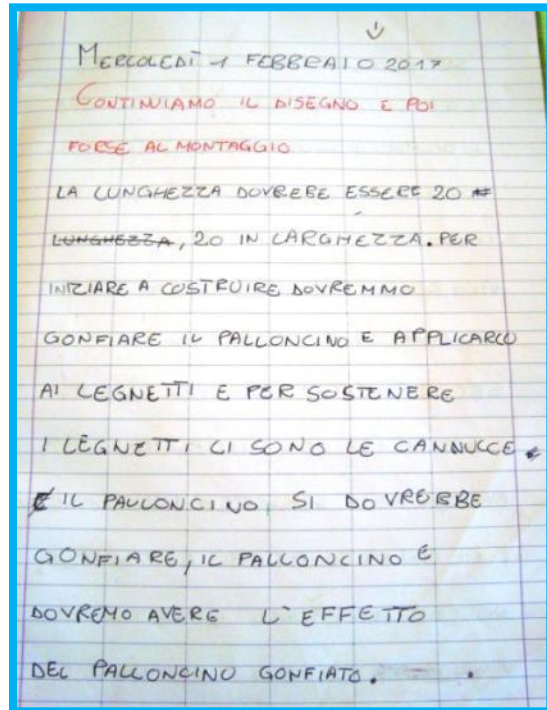 MERCOLEDÌ 1 FEBBRAIO 2017
CONTINUIAMO IL DISEGNO E POI
FORSE AL MONTAGGIO
LA LUNGHEZZA DOVREBE ESSERE 20
LUNGHEZZA, 20 IN LARGHEZZA. PER
INIZIARE A COSTRUIRE DOVREMMO
GONFIARE IL PALLONCINO E APPLICARLO
AI LEGNETTI E PER SOSTENERE
I LEGNETTI CI SONO LE CANNUCCE
E IL PALLONCINO, SI DOVREBBE
GONFIARE, IL PALLONCINO E
DOVREMO AVERE L'EFFETTO
DEL PALLONCINO GONFIATO.